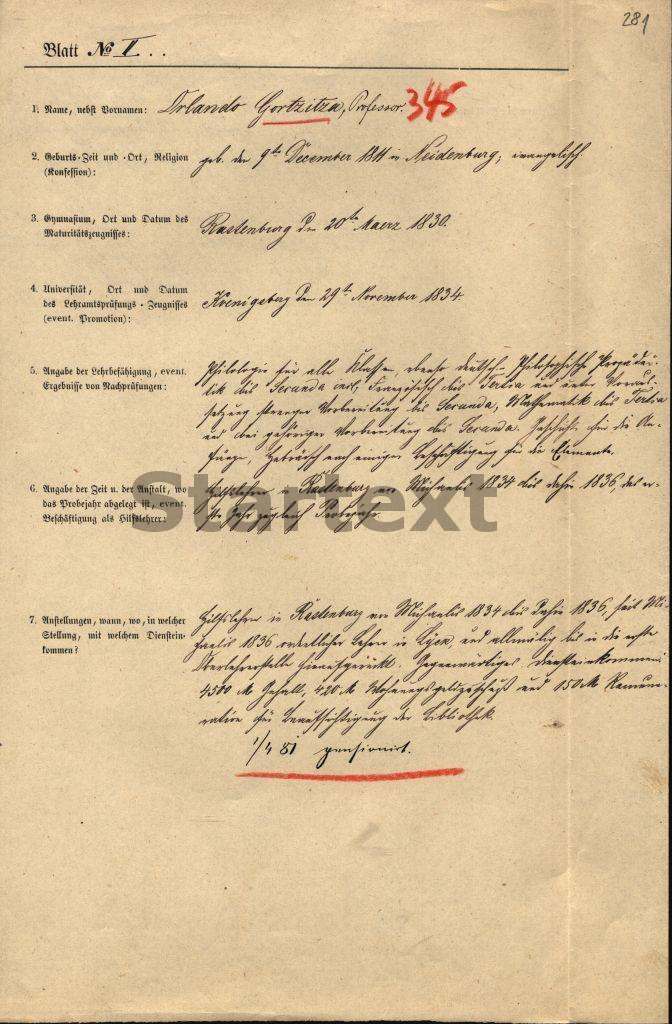 281
Blatt № I. .
1. Name, nebst Vornamen: Orlando Gortzitza, Professor. 345
2. Geburts-Zeit und -Ort, Religion (Konfession): geb. den 9ten December 1811 in Neidenburg; evangelisch.
3. Gymnasium, Ort und Datum des Maturitätszeugnisses: Rastenburg den 20ten Maerz 1830.
4. Universität, Ort und Datum des Lehramtsprüfungs-Zeugnisses (event. Promotion): Koenigsberg den 29ten November 1834.
5. Angabe der Lehrbefähigung, event. Ergebnisse von Nachprüfungen:
Philologie für alle Klassen, ebenso deutsch, Philosophische Propädeu-
tik bis Secunda incl, Französisch bis Tertia und unter Voraus-
setzung strenger Vorbereitung bis Secunda, Mathematik bis Tertia
und bei gehöriger Vorbereitung bis Secunda. Geschichte für die An-
fänge, Hebräisch nach einiger Beschäftigung für die Elemente.
6. Angabe der Zeit u. der Anstalt, wo das Probejahr abgelegt ist, event. Beschäftigung als Hilfslehrer:
Hilfslehrer in Rastenburg von Michaelis 1834 bis dahin 1836, das er-
ste Jahr zugleich Probejahr.
Startext
7. Anstellungen, wann, wo, in welcher Stellung, mit welchem Dienstein-
kommen?
Hilfslehrer in Rastenburg von Michaelis 1834 bis dahin 1836, seit Mi-
chaelis 1836 ordentlicher Lehrer in Lyck, und allmälig bis in die erste
Oberlehrerstelle hinaufgerückt. Gegenwärtiges Diensteinkommen
4500 M Gehalt, 420 M Wohnungsgeldzuschuß und 150 M Remune-
ration für Beaufsichtigung der Bibliothek.
1/4 81 pensionirt.